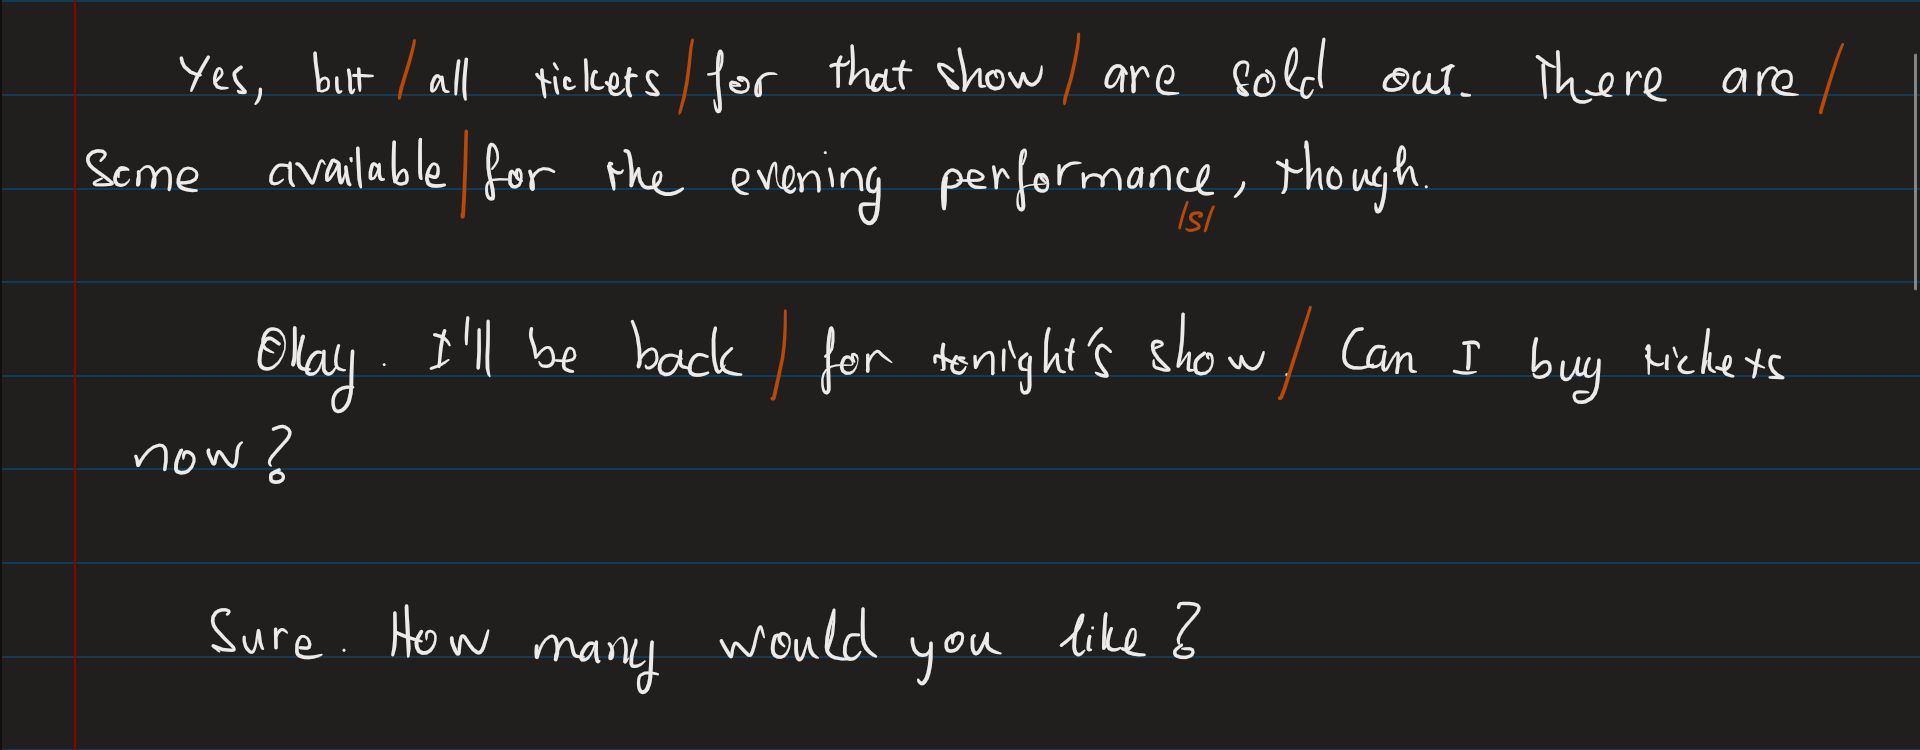 Yes, but / all tickets / for that show / are sold out. There are /
Some available / for the evening performance, though.
/s/
Okay. I'll be back / for tonight's show. / Can I buy tickets
now?
Sure. How many would you like?